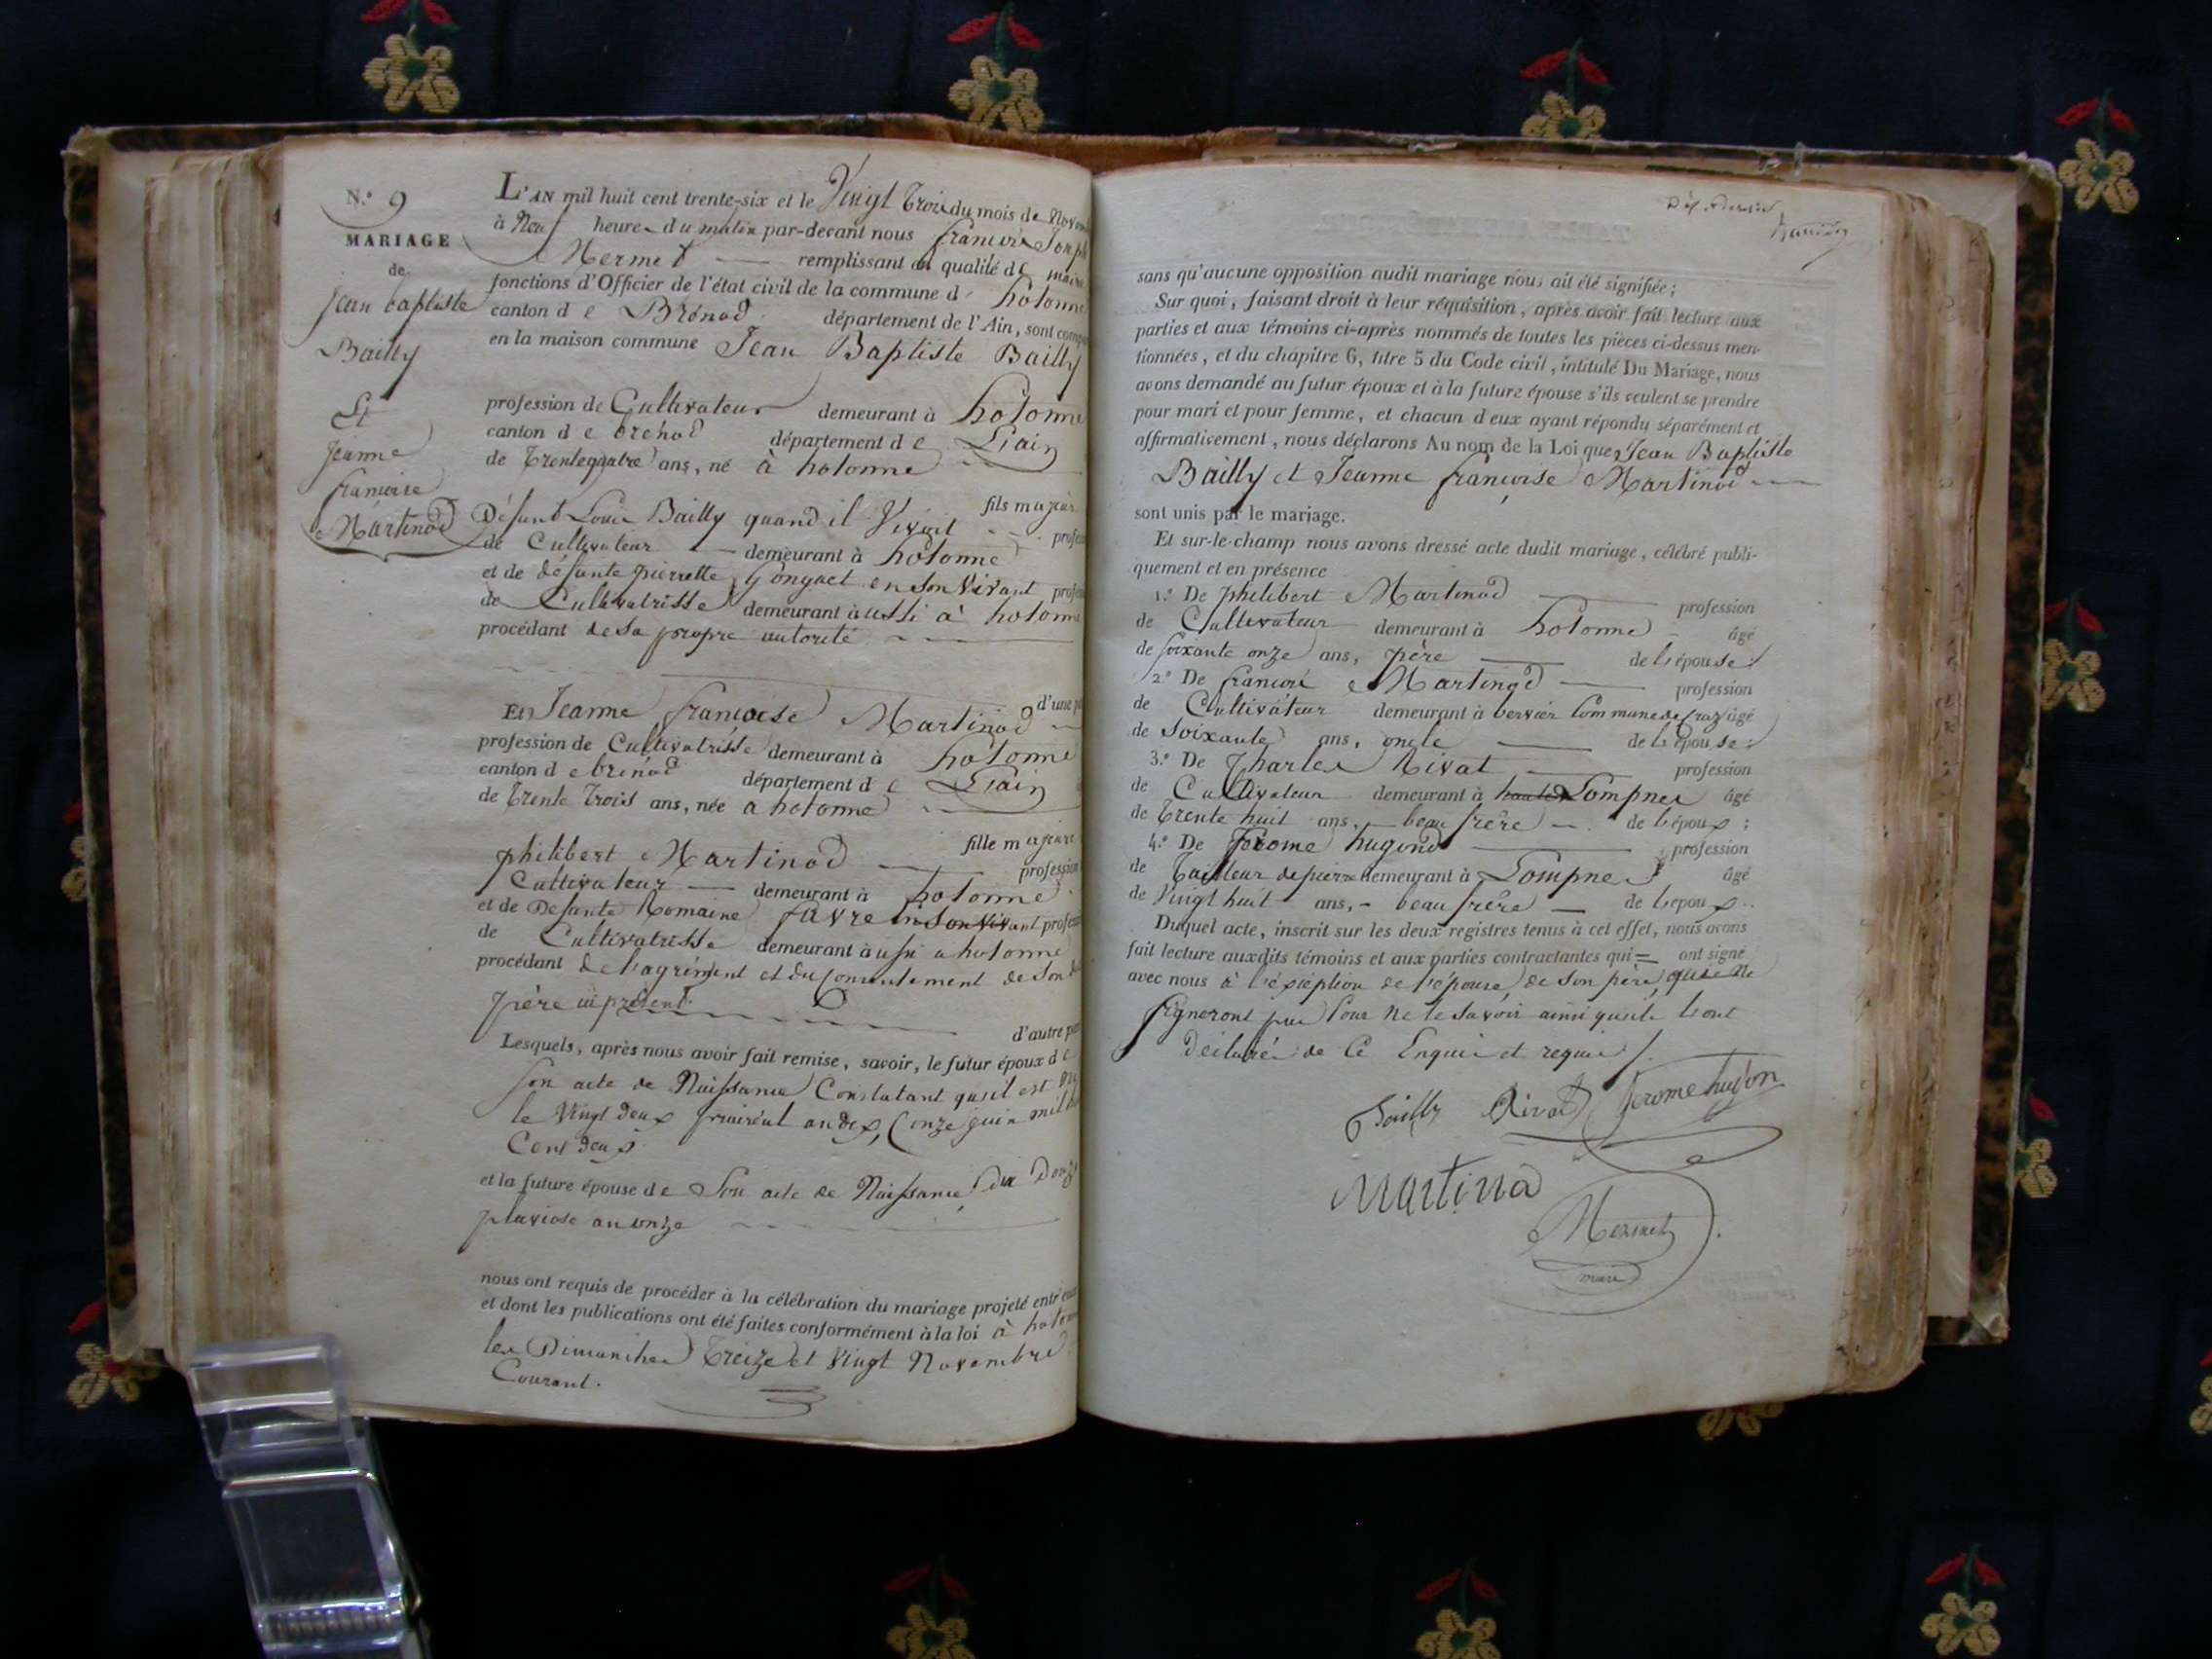 N.º 9
MARIAGE
de
jean baptiste
Bailly
Et
Jeanne
françoise
Martinod
L'AN mil huit cent trente-six et le Vingt Trois du mois de Novem
à Neuf heures du matin par-devant nous françois Joseph
Mermet — remplissant en qualité de maire
fonctions d'Officier de l'état civil de la commune d hotonne
canton d e Brénod département de l'Ain, sont comp
en la maison commune Jean Baptiste Bailly
profession de Cultivateur demeurant à hotonne
canton d e brénod département d e L'ain
de Trentequatre ans, né à hotonne
fils majeur
Défunt Louis Bailly quand il Vivoit profess
de Cultivateur — demeurant à hotonne
et de defunte pierrette en son Vivant profess
de Cultivatrisse demeurant à ussi à hotonne
procédant de sa propre autorité
d'une p
Et Jeanne françoise Martinod
profession de Cultivatrisse demeurant à hotonne
canton d e brénod département d e L'ain
de Trente Trois ans, née a hotonne
fille majeure
philibert Martinod — profession
Cultivateur — demeurant à hotonne
et de Defunte Romaine favre en son vivant profess
de Cultivatrisse demeurant à ussi a hotonne
procédant de l'agrément et du consentement de son d
père ici présent.
d'autre par
Lesquels, après nous avoir fait remise, savoir, le futur époux d e
son acte de Naissance Constatant qu'il est né
le Vingt deux prairéal an dix, (onze juin mil h
Cent deux
et la future épouse d e Son acte de Naissance du Douze
pluviose an onze
nous ont requis de procéder à la célébration du mariage projeté entr'eux
et dont les publications ont été faites conformément à la loi à hotonne
les Dimanches Treize et Vingt Novembre
Courant.
sans qu'aucune opposition audit mariage nous ait été signifiée;
Sur quoi, faisant droit à leur réquisition, après avoir fait lecture aux
parties et aux témoins ci-après nommés de toutes les pièces ci-dessus men-
tionnées, et du chapitre 6, titre 5 du Code civil, intitulé Du Mariage, nous
avons demandé au futur époux et à la future épouse s'ils veulent se prendre
pour mari et pour femme, et chacun d'eux ayant répondu séparément et
affirmativement, nous déclarons Au nom de la Loi que Jean Baptiste
Bailly et Jeanne françoise Martinod
sont unis par le mariage.
Et sur-le-champ nous avons dressé acte dudit mariage, célébré publi-
quement et en présence
1.º De philibert Martinod — profession
de Cultivateur demeurant à hotonne âgé
de soixante onze ans, père — de l'épouse;
2.º De francois Martinod — profession
de Cultivateur demeurant à Commune de âgé
de Soixante ans, oncle — de l'épouse;
3.º De Charles Rivat — profession
de Cultivateur demeurant à Lompnes âgé
de Trente huit ans, — beau frère — de l'époux;
4.º De Jérome hugond — profession
de Tailleur de pierre demeurant à Lompnes âgé
de Vingt huit ans, - beau frère — de l'époux.
Duquel acte, inscrit sur les deux registres tenus à cet effet, nous avons
fait lecture auxdits témoins et aux parties contractantes qui = ont signé
avec nous à l'éxception de l'épouse, de son père, qui Ne
signeront pas pour Ne le savoir ainsi qu'ils l'ont
déclaré de Ce Enquis et requis /.
Bailly Rivat Jerome hugon
Martina
Mermet
maire